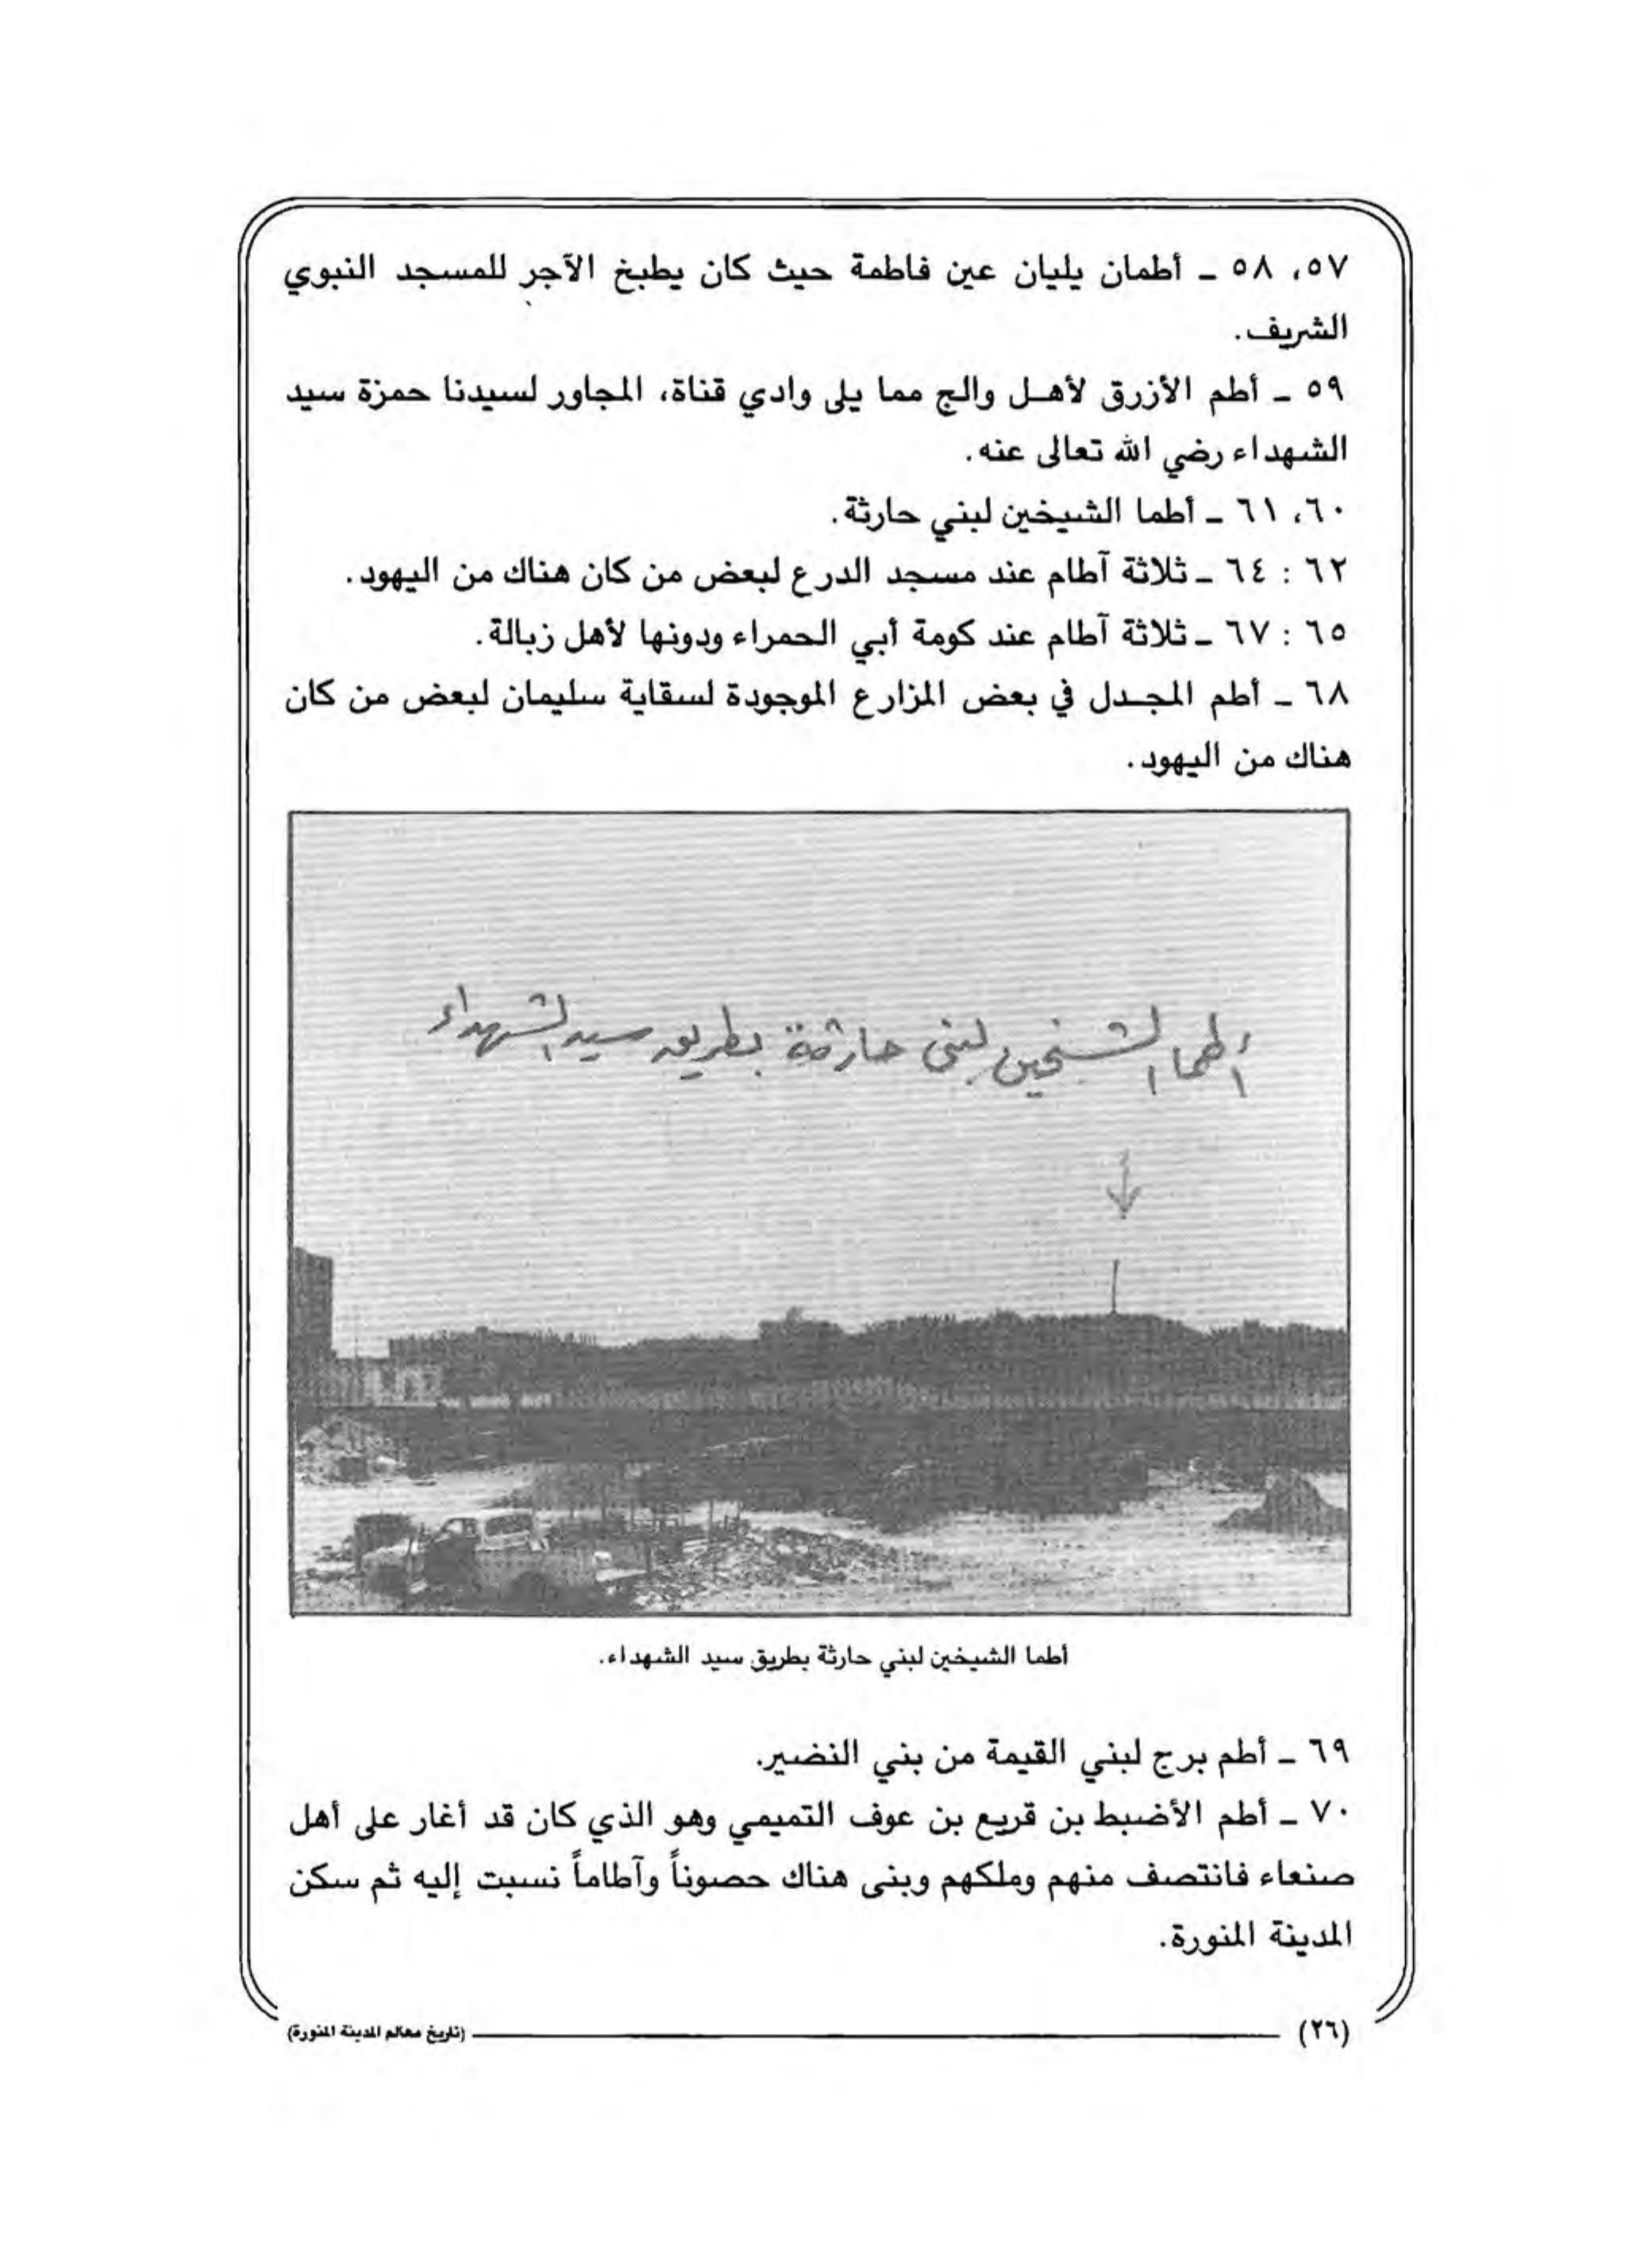 ٥٧، ٥٨ ـ أطمان يليان عين فاطمة حيث كان يطبخ الآجر للمسجد النبوي
الشريف.
٥٩ ـ أطم الأزرق لأهل والج مما يلى وادي قناة، المجاور لسيدنا حمزة سيد
الشهداء رضي الله تعالى عنه.
٦٠، ٦١ ـ أطما الشيخين لبني حارثة.
٦٢ : ٦٤ ـ ثلاثة آطام عند مسجد الدرع لبعض من كان هناك من اليهود.
٦٥ : ٦٧ ـ ثلاثة آطام عند كومة أبي الحمراء ودونها لأهل زبالة.
٦٨ ـ أطم المجدل في بعض المزارع الموجودة لسقاية سليمان لبعض من كان
هناك من اليهود.
أطما الشيخين لبنى حارثة بطريق سيد الشهداء
أطما الشيخين لبني حارثة بطريق سيد الشهداء.
٦٩ ـ أطم برج لبني القيمة من بني النضير.
٧٠ ـ أطم الأضبط بن قريع بن عوف التميمي وهو الذي كان قد أغار على أهل
صنعاء فانتصف منهم وملكهم وبنى هناك حصوناً وآطاماً نسبت إليه ثم سكن
المدينة المنورة.
(٢٦) (تاريخ معالم المدينة المنورة)